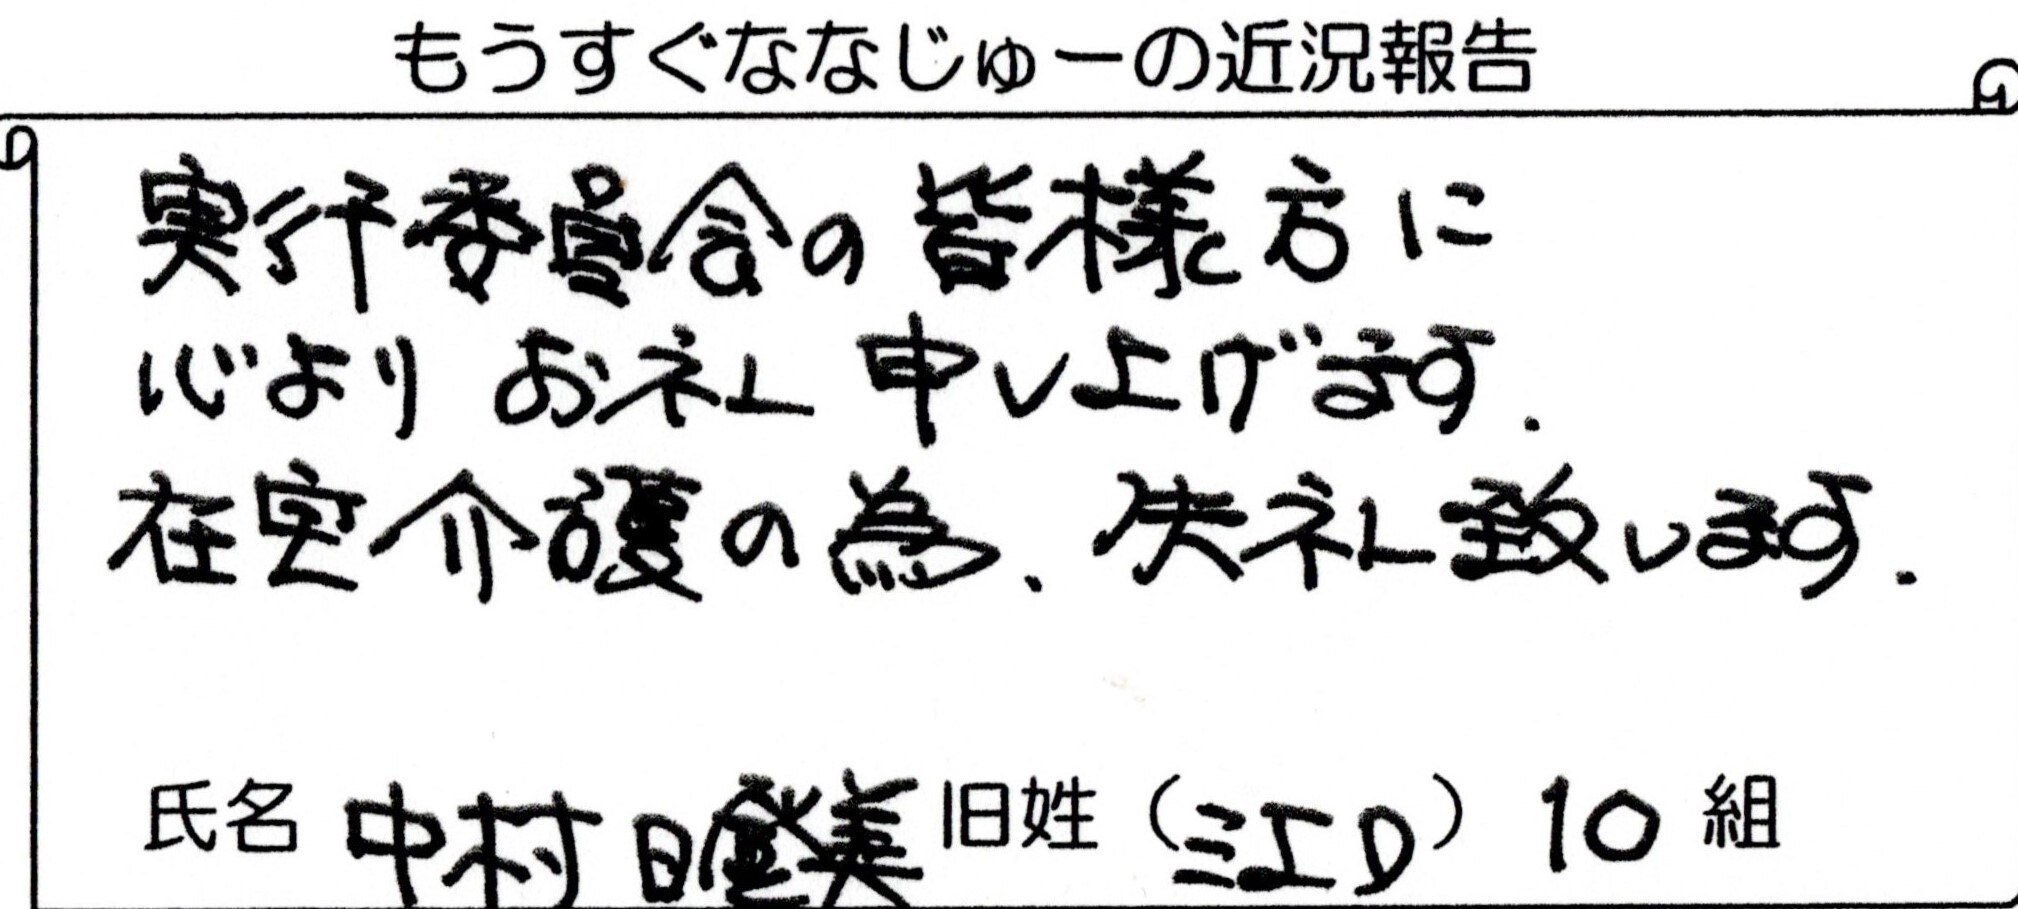 もうすぐななじゅーの近況報告
実行委員会の皆様方に
心よりお礼申し上げます.
在宅介護の為、失礼致します.
氏名 中村 美 旧姓 (江口) 10 組